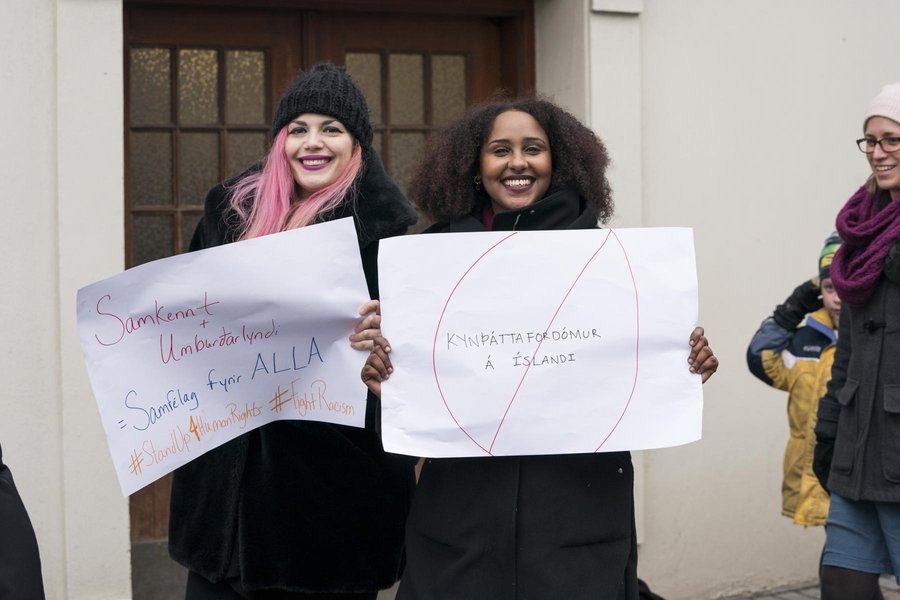 Samkennt
+
Umburðarlyndi
= Samfélag fyrir ALLA
#StandUp4HumanRights #FightRacism
KYNÞÁTTAFORDÓMUR
Á ÍSLANDI